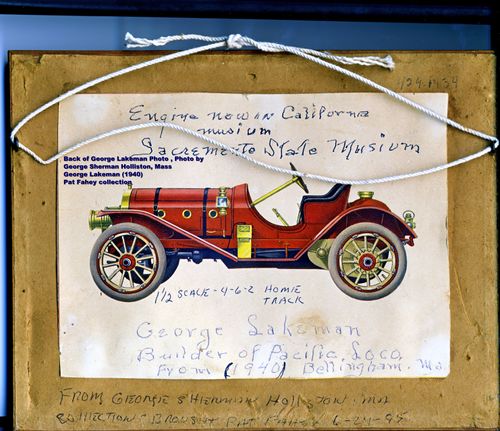 124-1939
Engine now in California
musium
Sacremento State Musium
Back of George Lakeman Photo , Photo by
George Sherman Holliston, Mass
George Lakeman (1940)
Pat Fahey collection
1½ SCALE - 4-6-2 HOME
TRACK
George Lakeman
Builder of Pacific Loco
From (1940) Bellingham. Ma.
FROM GEORGE SHERMAN HOLLISTON, MA
COLLECTION BROUGHT PAT FAHEY 6-24-95